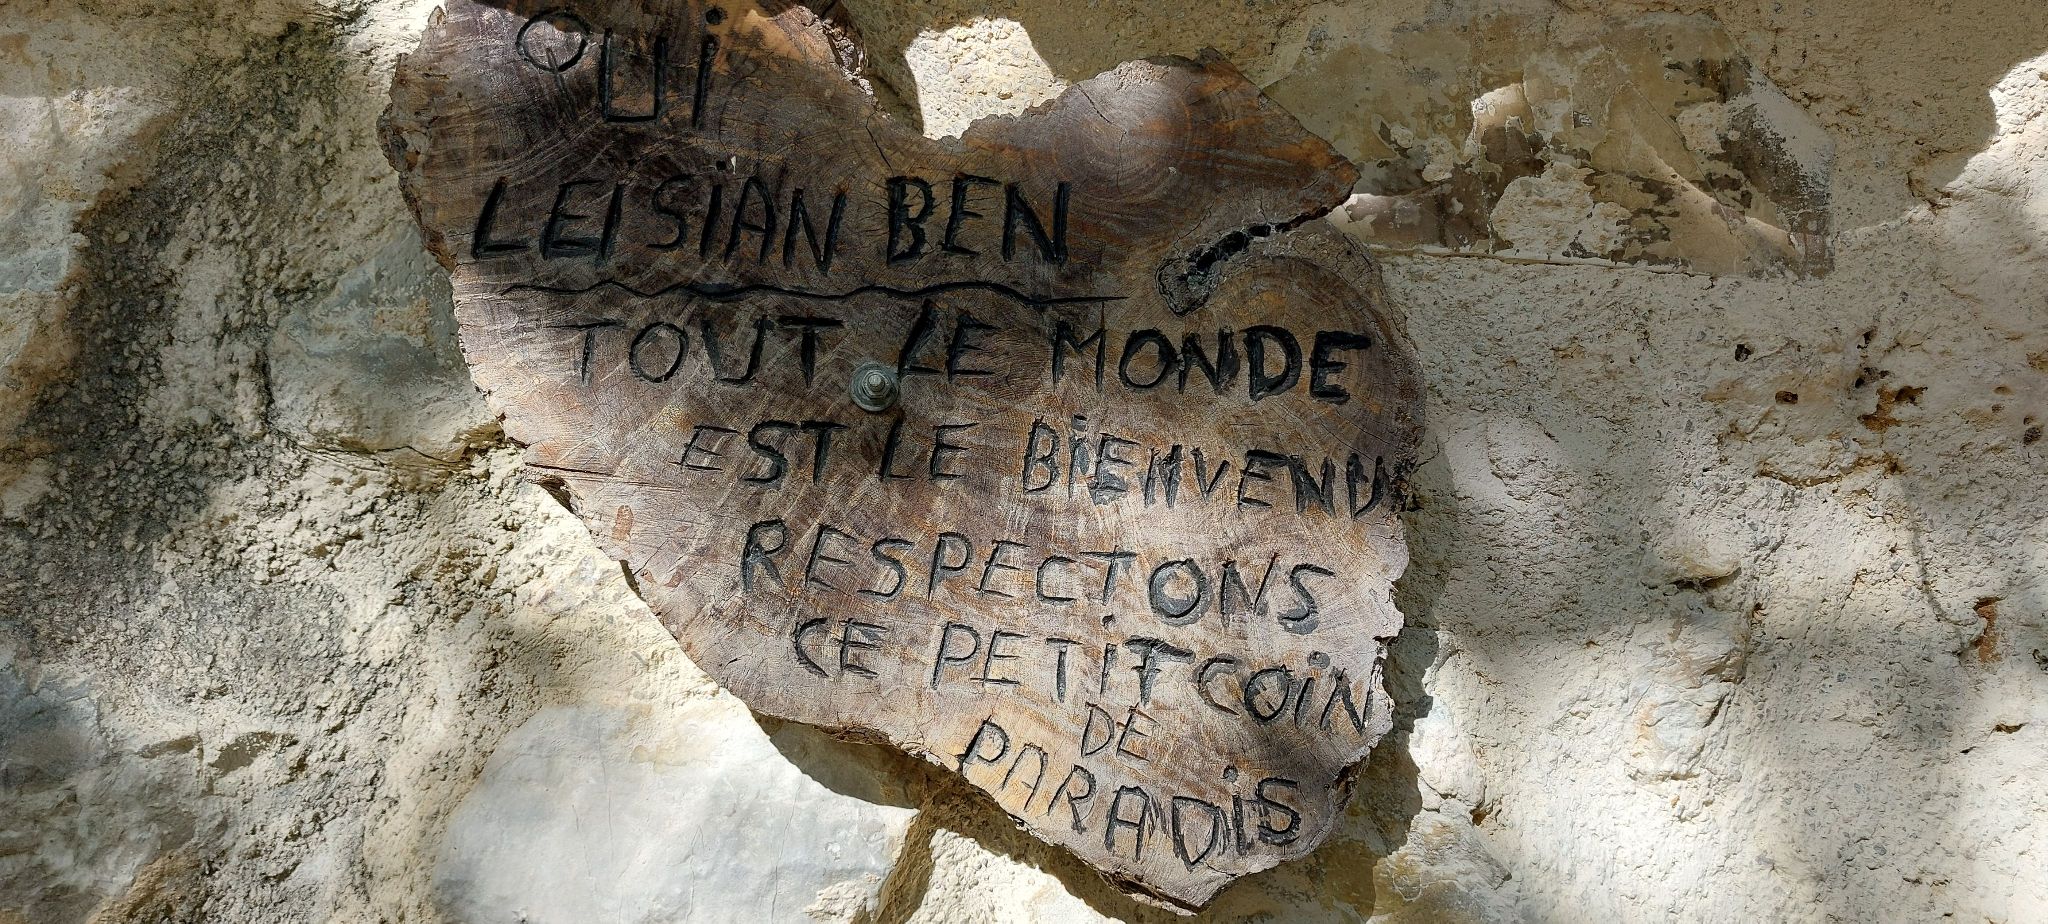 OUi
LEISiAN BEN
TOUT LE MONDE
EST LE BiENVENU
RESPECTONS
CE PETiT COiN
DE
PARADiS